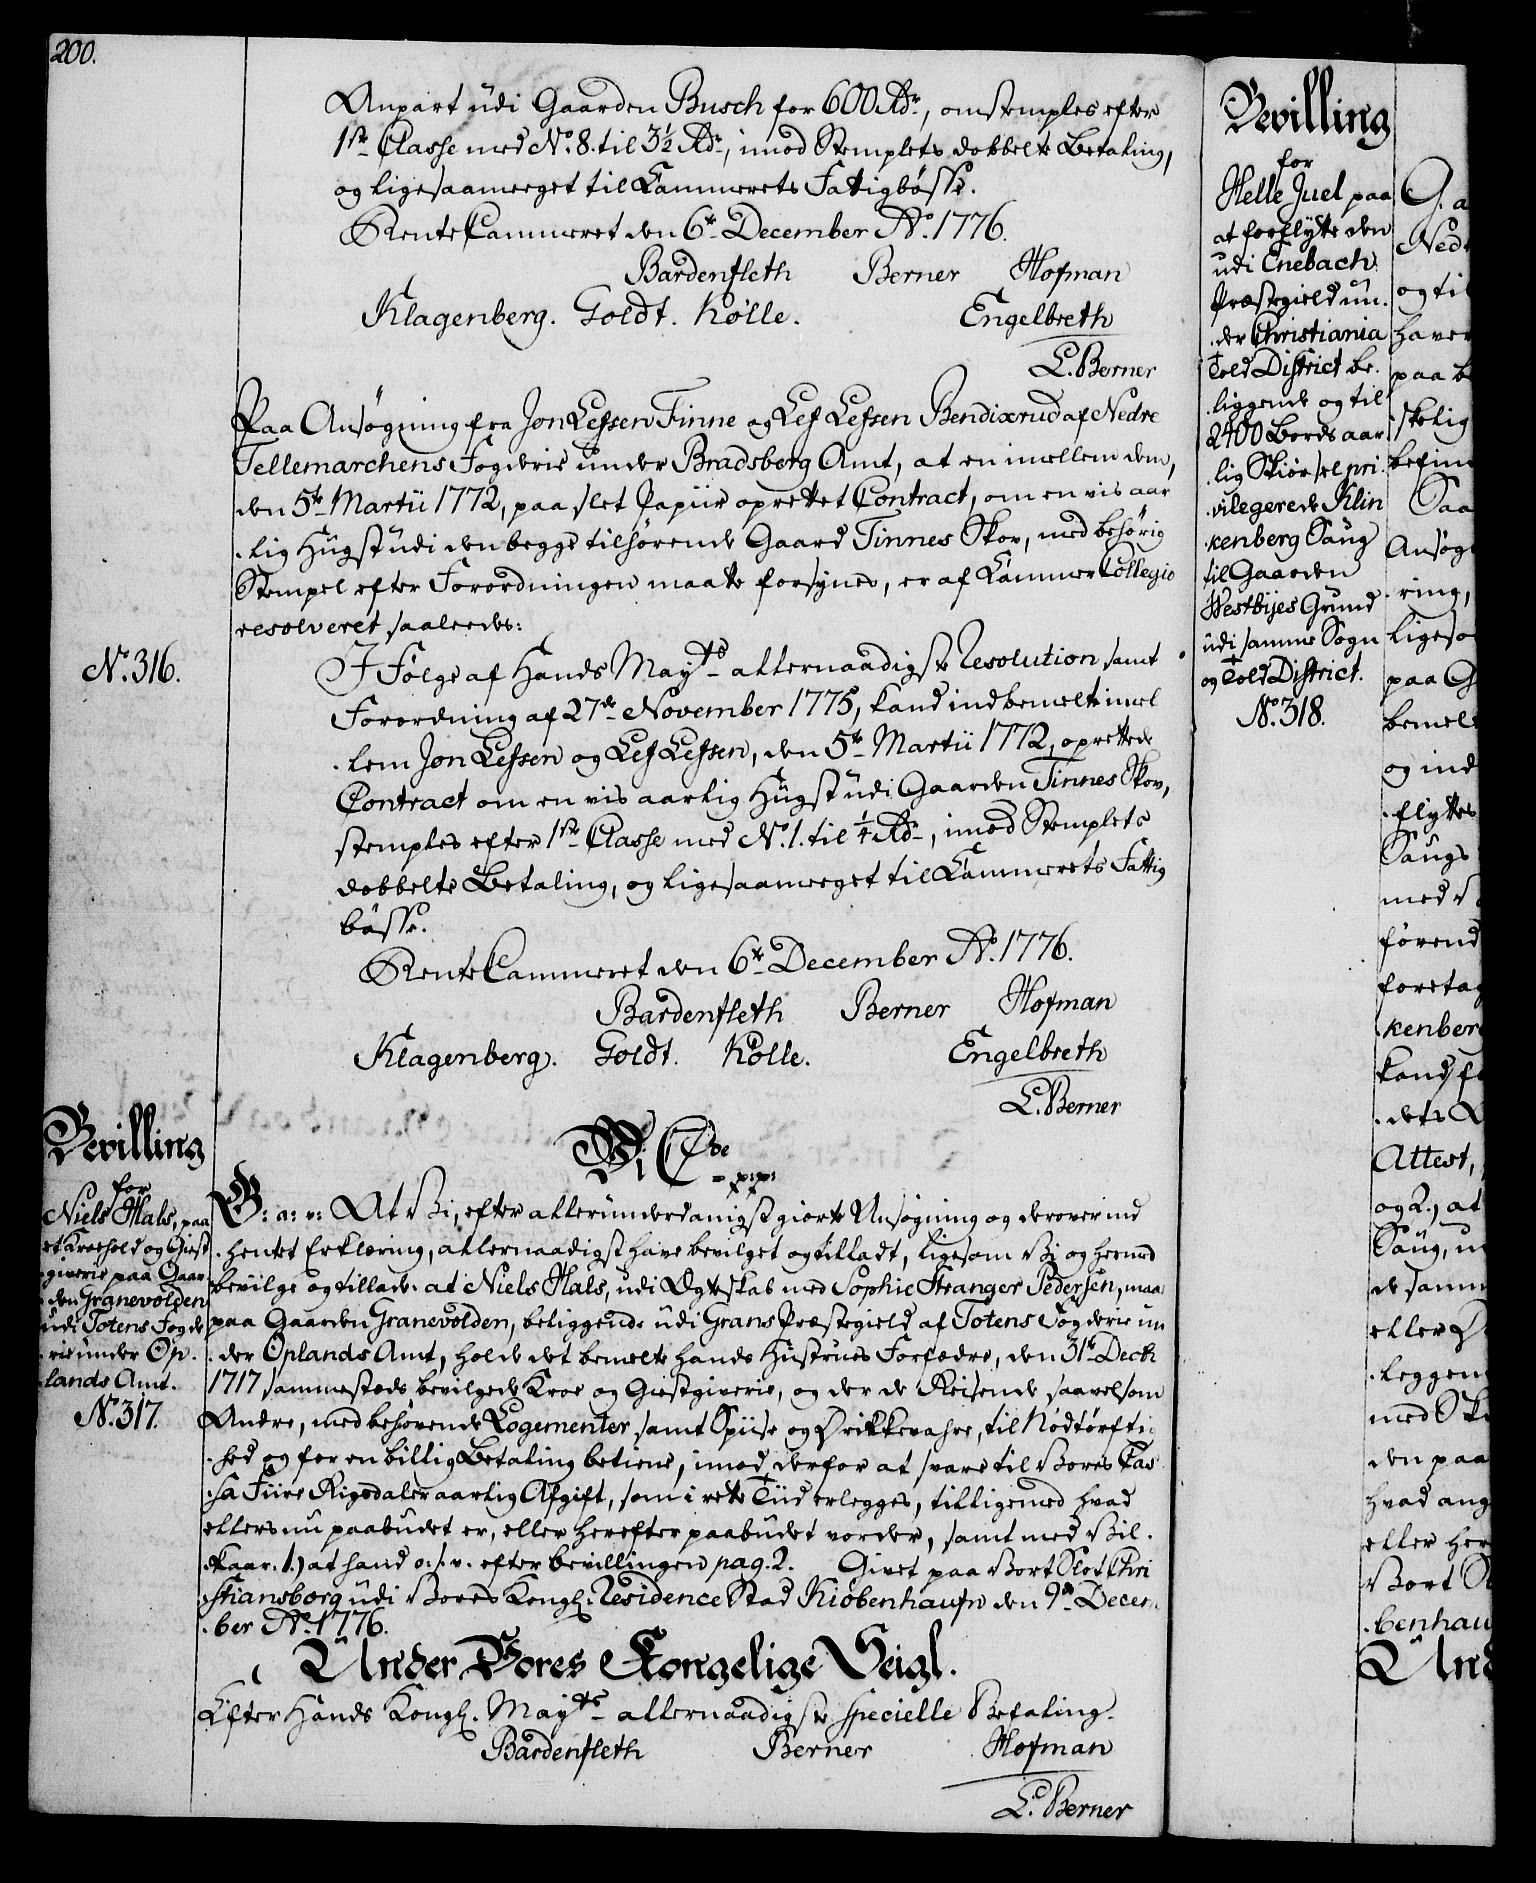 200.
Anpart udi Gaarden Busch for 600 Rdr, omstemples efter
1ste Classe med No. 8. til 3½ Rdr, imod Stemplets dobbelte Betaling,
og ligesaameeget til Cammerets Fattigbösse.
RenteCammeret den 6te December Ao. 1776.
Bardenfleth Berner Hofman
Klagenberg. Goldt. Kølle. Engelbreth
L. Berner
Paa Ansøgning fra Jon Lefsen Finne og Lef Lefsen Bendixrud af Nedre
Tellemarchens Fogderie under Bradsberg Amt, at en imellem dem,
den 5te Martii 1772, paa slet Papiir oprettet Contract, om en vis aar
.lig Hugst udi den begge tilhørende Gaard Finnes Skov, med behörig
Stempel efter Forordningen maatte forsynes, er af Cammer Collegio
resolveret saaleedes:
No. 316.
I Følge af Hands Mayts allernaadigste Resolution samt
Forordning af 27de November 1775, kand indbemelte imel
.lem Jon Lefsen og Lef Lefsen, den 5te Martii 1772, oprettede
Contract om en vis aarlig Hugst udi Gaarden Finnes Skov,
stemples efter 1ste Classe med No. 1. til ¼ Rdr, imod Stemplets
dobbelte Betaling, og ligesaameeget til Cammerets Fattig
bösse.
RenteCammeret den 6te December Ao. 1776.
Bardenfleth Berner Hofman
Klagenberg. Goldt. Kølle. Engelbreth
L. Berner
Bevilling
for
Niels Hals, paa
et Kroehold og Giest
.giverie paa Gaar
.den Granevolden
udi Totens Fogde
.rie under Op.
.lands Amt.
No. 317.
Wi C 7de
p:p:
G: a: v: At Vi, efter allerunderdanigst giorte Ansøgning og derover ind
.hentet Erklæring, allernaadigst have bevilget og tilladt, ligesom Vi og hermed
bevilge og tillade: at Niels Hals, udi Ægteskab med Sophie Stranger Pedersen, maa
paa Gaarden Granevolden, beliggende udi Grans Præstegield af Totens Fogderie un
.der Oplands Amt, holde det bemelte hands Hustrues Forfædre, den 31te Decb
1717 sammesteds bevilgede Kroe og Giestgiverie, og der de Reisende saavelsom
Andre, med behørende Logementer samt Spiise og Drikkevahre, til Nödtørftig
.hed og for en billig Betaling betiene, imod derfor at svare til Vores Cas
.sa Fiire Rigsdaler aarlig Afgift, som i rette Tiid erlegges, tilligemed hvad
ellers nu paabudet er, eller herefter paabudet vorder, samt med Vil.
.kaar: 1.) at hand o: s: v. efter bevillingen pag. 2. Givet paa Vort Slot Chri
.stiansborg udi Vores Kongl: Residence Stad Kiöbenhaufn den 9de Decem
.ber Ao. 1776.
Under Vores Kongelige Seigl.
Efter Hands Kongl. Mayts allernaadigste specielle Befaling.
Bardenfleth Berner Hofman
L. Berner
Bevilling
for
Helle Juel paa
at forflytte den
udi Enebach
Præstegield un.
.der Christiania
Told District be.
.liggende og til
2400 Bords aar
.lig Skiørsel pri.
.vilegerede Klin
.kenberg Saug
til Gaarden
Westbyes Grund
udi samme Sogn
og Told District.
No. 318.
G. a
Ned
og til
haver
paa be
skelig
befin
Saa
Ansøg
ring,
ligeso
paa G
bemel
og ind
.flyttes
Saugs
med
førend
foretag
.kenber
kand
.dets
Attest,
og 2.) at
Saug, u
de samm
eller
.leggen
med Sk
den paa
hvad ang
eller her
Vort S
.benhau
Und